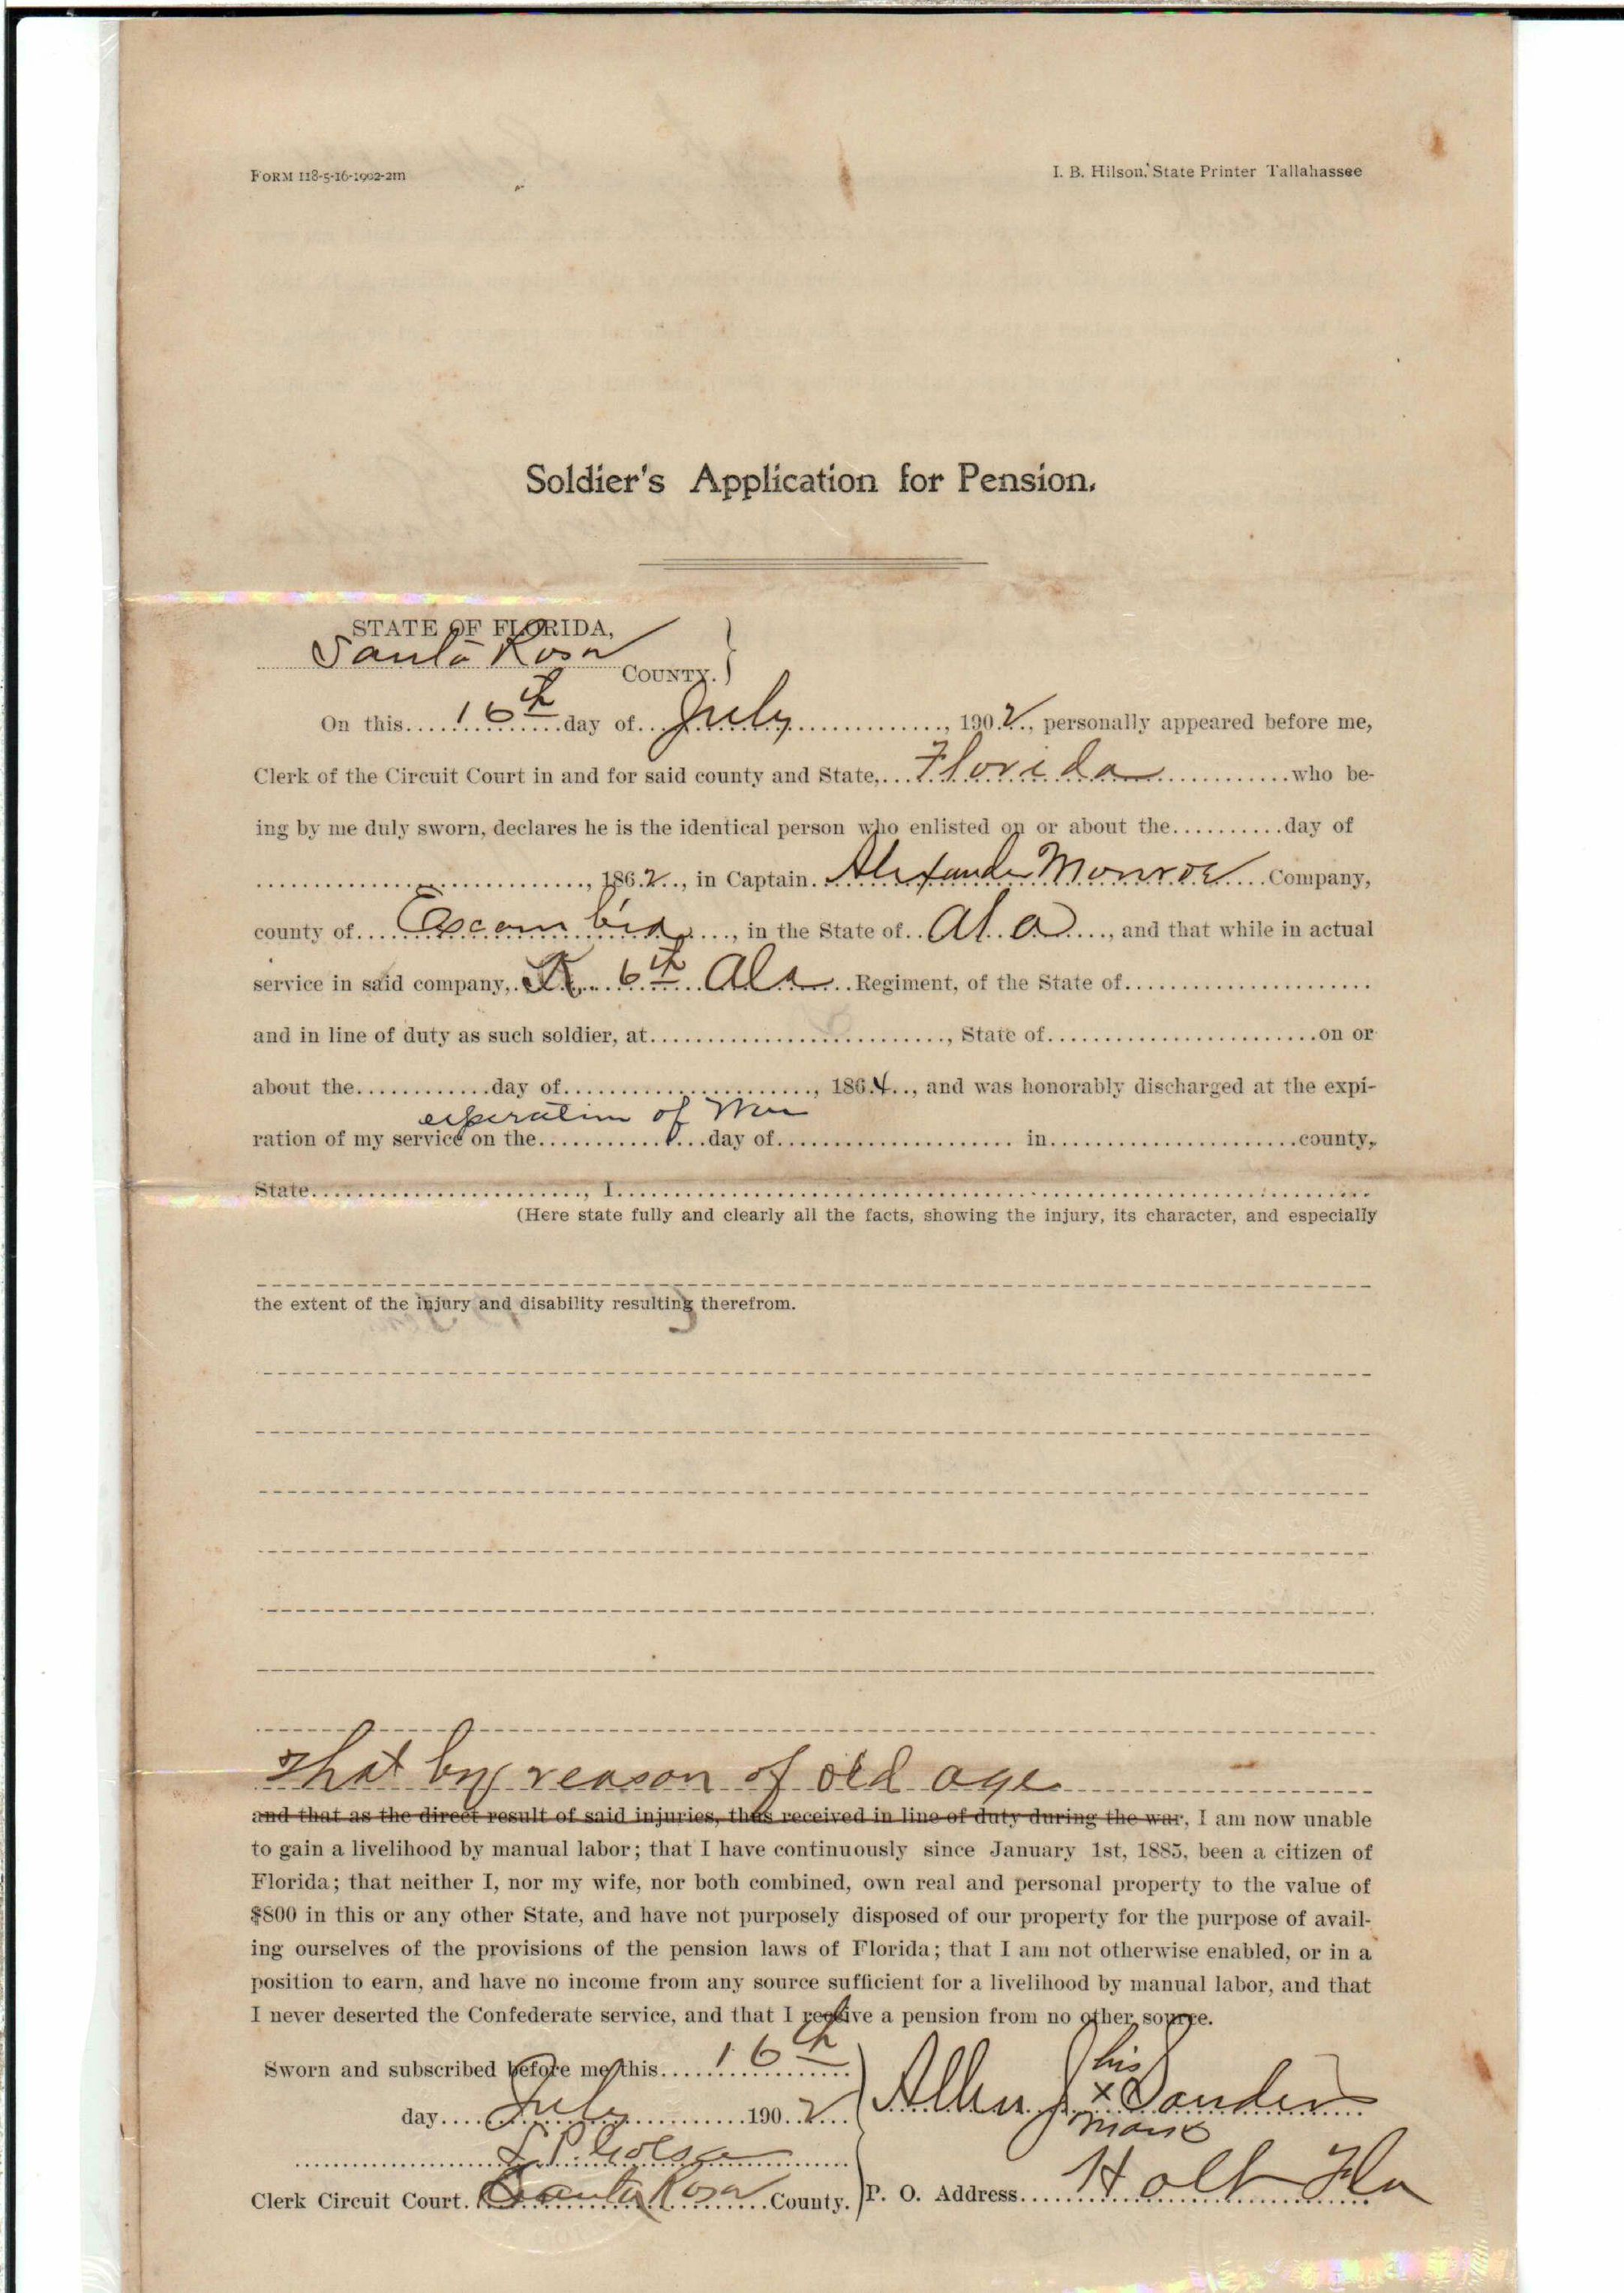 FORM 118-5-16-1902-2m
I. B. Hilson, State Printer Tallahassee
Soldier's Application for Pension.
STATE OF FLORIDA,
Santa Rosa COUNTY.
On this 16th day of July, 1902, personally appeared before me,
Clerk of the Circuit Court in and for said county and State, Florida who be-
ing by me duly sworn, declares he is the identical person who enlisted on or about the..........day of
, 1862, in Captain Alexander Monroe Company,
county of Escambia, in the State of Ala, and that while in actual
service in said company, 6th Ala Regiment, of the State of
and in line of duty as such soldier, at, State of on or
about the day of, 1864, and was honorably discharged at the expi-
experation of War
ration of my service on the day of in county,
State, I
(Here state fully and clearly all the facts, showing the injury, its character, and especially
the extent of the injury and disability resulting therefrom.
That by reason of old age
and that as the direct result of said injuries, thus received in line of duty during the war, I am now unable
to gain a livelihood by manual labor; that I have continuously since January 1st, 1885, been a citizen of
Florida; that neither I, nor my wife, nor both combined, own real and personal property to the value of
$800 in this or any other State, and have not purposely disposed of our property for the purpose of avail-
ing ourselves of the provisions of the pension laws of Florida; that I am not otherwise enabled, or in a
position to earn, and have no income from any source sufficient for a livelihood by manual labor, and that
I never deserted the Confederate service, and that I receive a pension from no other source.
Sworn and subscribed before me this 16th
day July 1902
Allen J his x mark Sanders
Clerk Circuit Court. Santa Rosa County.
P. O. Address Holt Fla